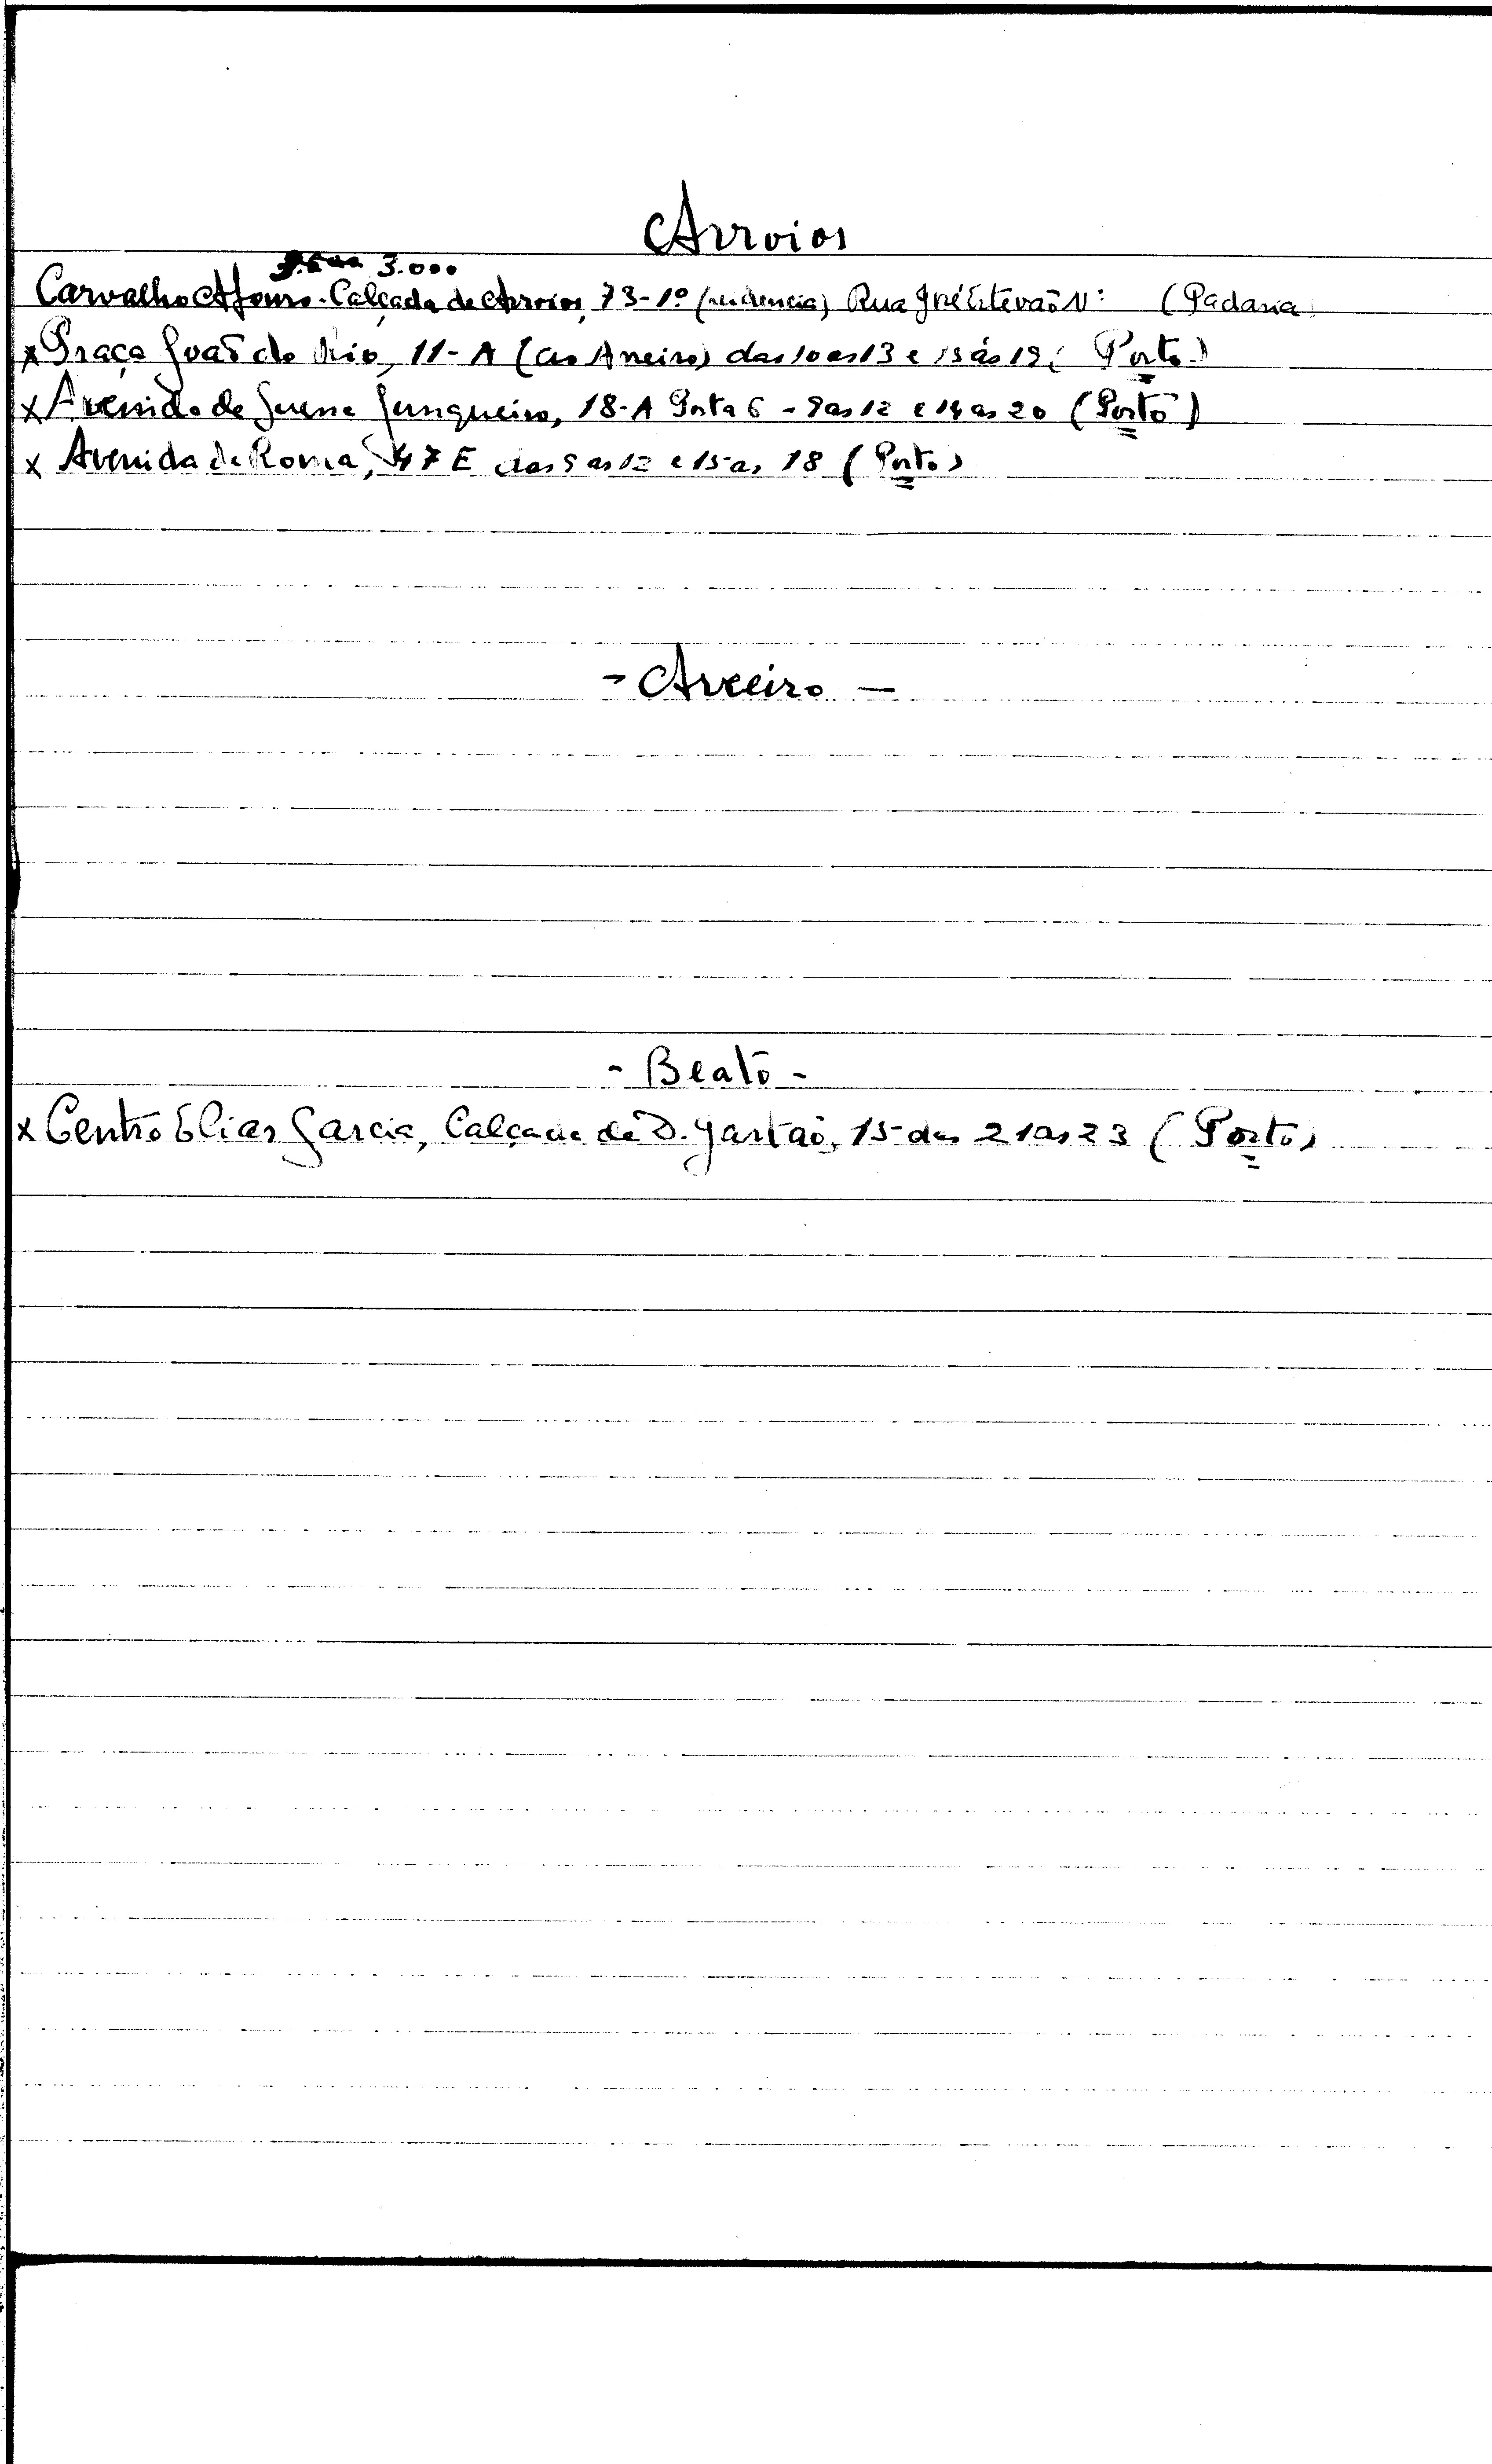 Arroios
3.000
Carvalho Afonso - Calçada de Arroios, 73-1º (residencia) Rua José Estevão Nº (Padaria)
x Praça João do Rio, 11-A (ao Areeiro) das 10 as 13 e 15 ás 19 (Porto)
x Avenida de Guerra Junqueiro, 18-A Porta 6 - 9 as 12 e 14 as 20 (Porto)
x Avenida de Roma, 47 E das 9 as 12 e 15 as 18 (Porto)
- Areeiro -
- Beato -
x Centro Elias Garcia, Calçada de D. Gastão, 15 - das 21 as 23 (Porto)